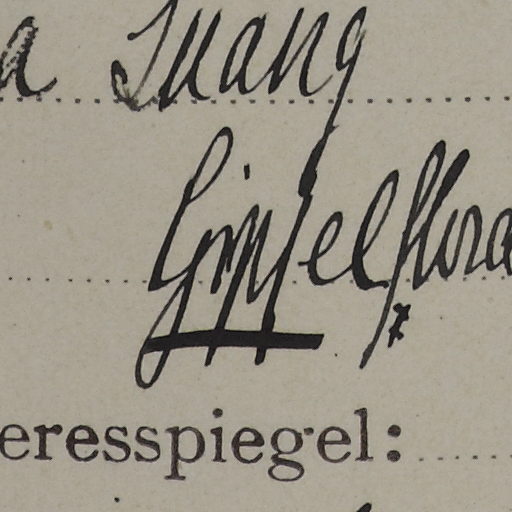 a Luang
Gipfelflora
eresspiegel: